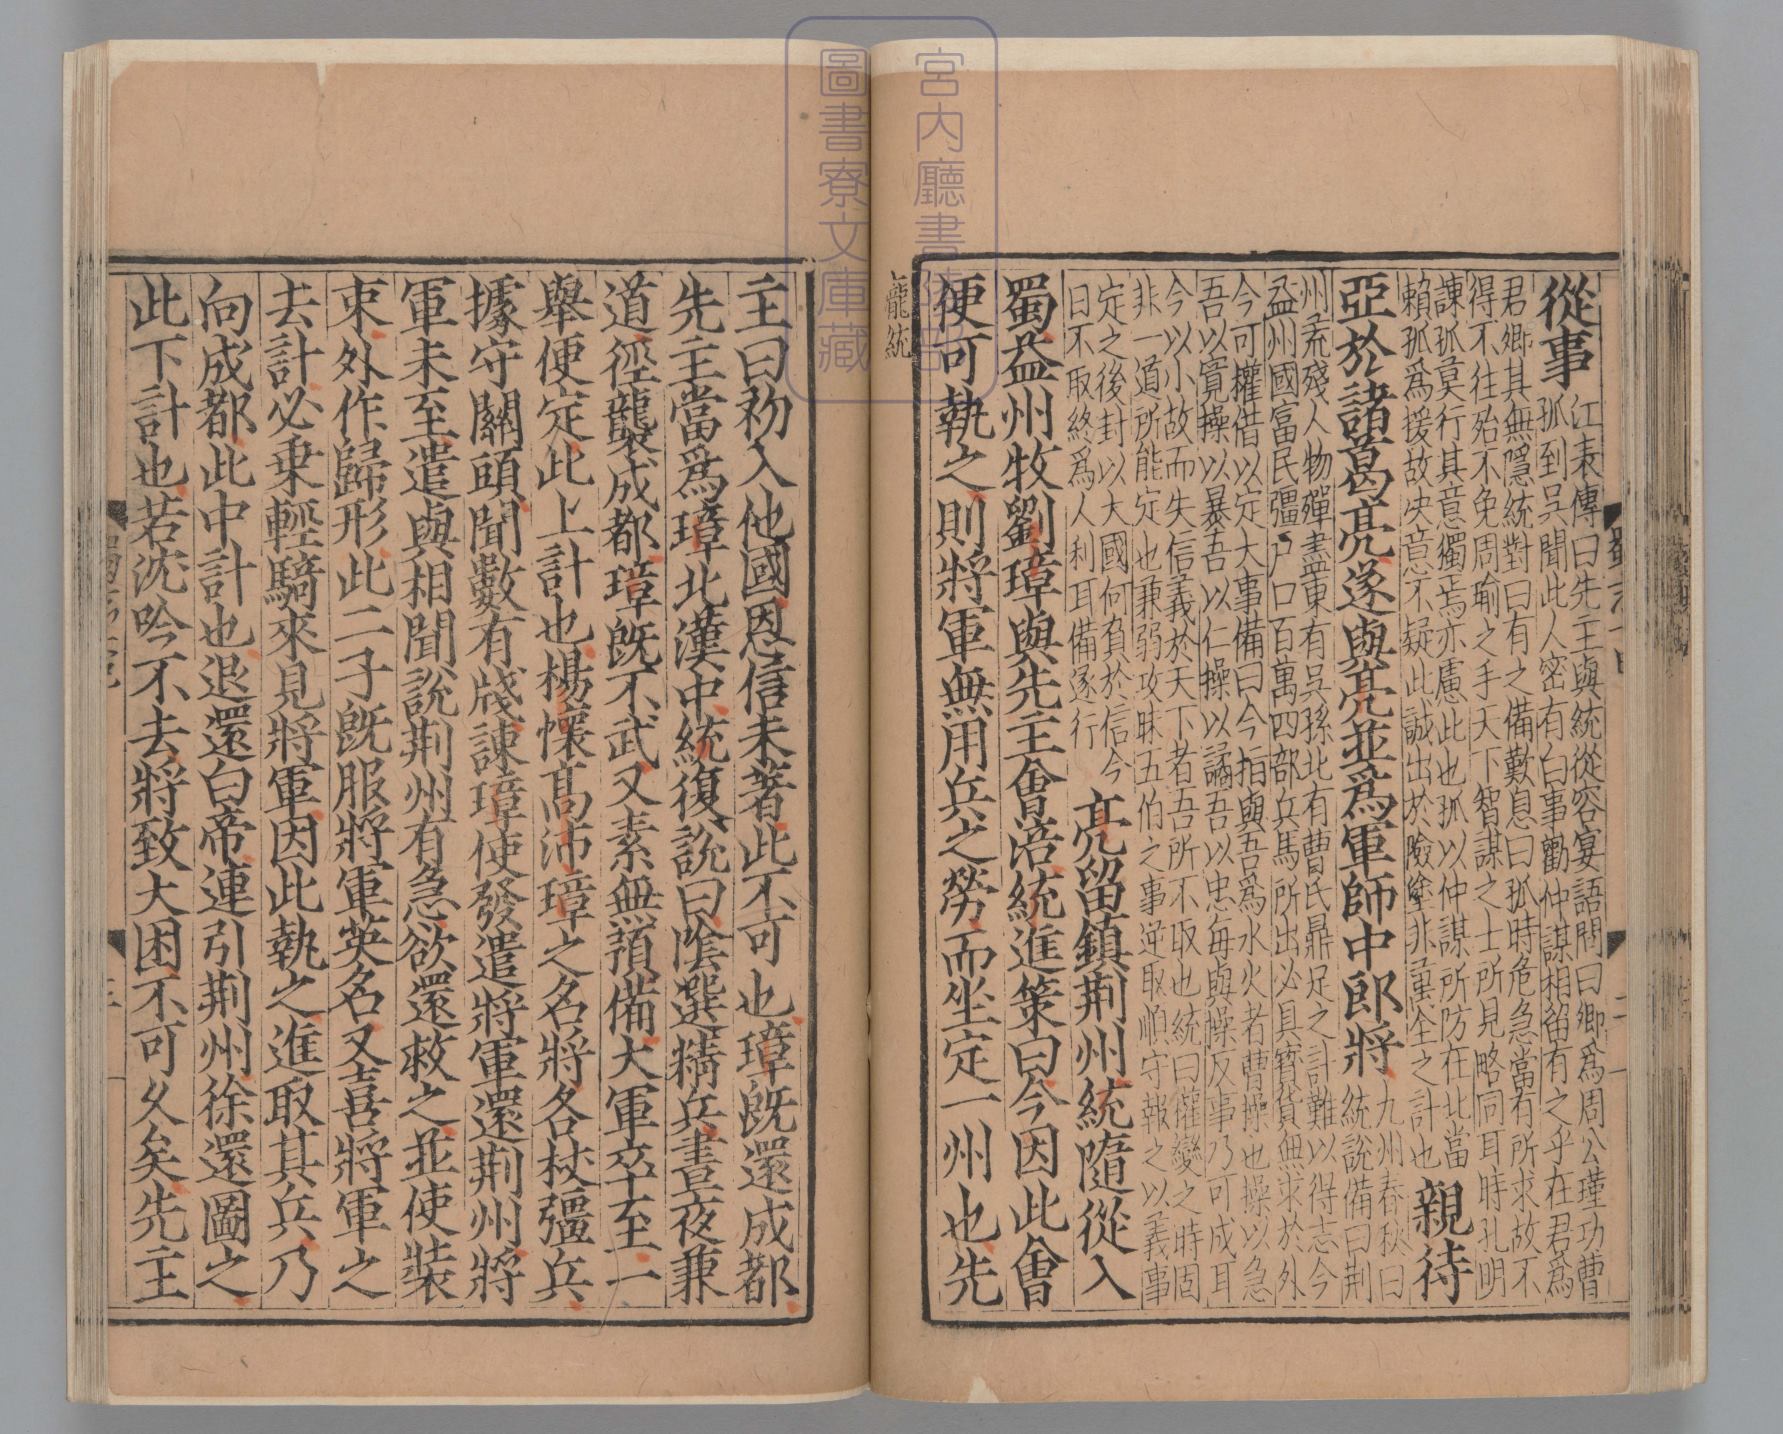 從事
江表傳曰先主與統從容宴語問曰卿爲周公瑾功曹
孤到吳聞此人密有白事勸仲謀相留有之乎在君爲
君卿其無隱統對曰有之備歎息曰孤時危急當有所求故不
得不往殆不免周瑜之手天下智謀之士所見略同耳時孔明
諫孤莫行其意獨焉亦慮此也孤以仲謀所防在北當
賴孤爲援故决意不疑此誠出於險塗非萬全之計也
親待
亞於諸葛亮遂與亮並爲軍師中郎將
九州春秋曰
統說備曰荆
州荒殘人物殫盡東有吳孫北有曹氏鼎足之計難以得志今
益州國富民彊戶口百萬四部兵馬所出必具寶貨無求於外
今可權借以定大事備曰今指與吾爲水火者曹操也操以急
吾以寬操以暴吾以仁操以譎吾以忠每與操反事乃可成耳
今以小故而失信義於天下者吾所不取也統曰權變之時固
非一道所能定也兼弱攻昧五伯之事逆取順守報之以義事
定之後封以大國何負於信今
日不取終爲人利耳備遂行
亮留鎮荆州統隨從入
蜀益州牧劉璋與先主會涪統進策曰今因此會
便可執之則將軍無用兵之勞而坐定一州也先
龐統
宮内廳書陵部
圖書寮文庫藏
主曰初入他國恩信未著此不可也璋旣還成都
先主當爲璋北漢中統復說曰陰選精兵晝夜兼
道徑襲成都璋旣不武又素無預備大軍卒至一
舉便定此上計也楊懷高沛璋之名將各杖彊兵
據守關頭聞數有牋諫璋使發遣將軍還荆州將
軍未至遣與相聞說荆州有急欲還救之並使裝
束外作歸形此二子旣服將軍英名又喜將軍之
去計必乗輕騎來見將軍因此執之進取其兵乃
向成都此中計也退還白帝連引荆州徐還圖之
此下計也若沈吟不去將致大困不可乆矣先主